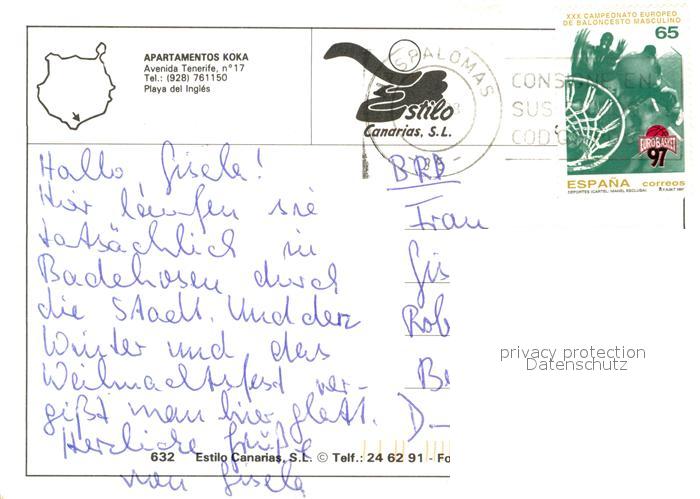 APARTAMENTOS KOKA
Avenida Tenerife, n° 17
Tel.: (928) 761150
Playa del Inglés
Estilo
Canarias, S.L.
SPALOMAS
CONSIGNE EN
SUS
COD
XXX CAMPEONATO EUROPEO
DE BALONCESTO MASCULINO
65
EUROBASKET
97
ESPAÑA correos
DEPORTES (CARTEL: MANEL ESCLUSA)
Hallo Gisela!
Hier laufen sie
tatsächlich in
Badehosen durch
die Stadt. Und den
Winter und das
Weihnachtsfest ver-
gißt man hier glatt.
Herzliche Grüße
von Gisela
BRD
Frau
Gis
Rob
Be
D-
privacy protection
Datenschutz
632 Estilo Canarias, S.L. © Telf.: 24 62 91 - Fo